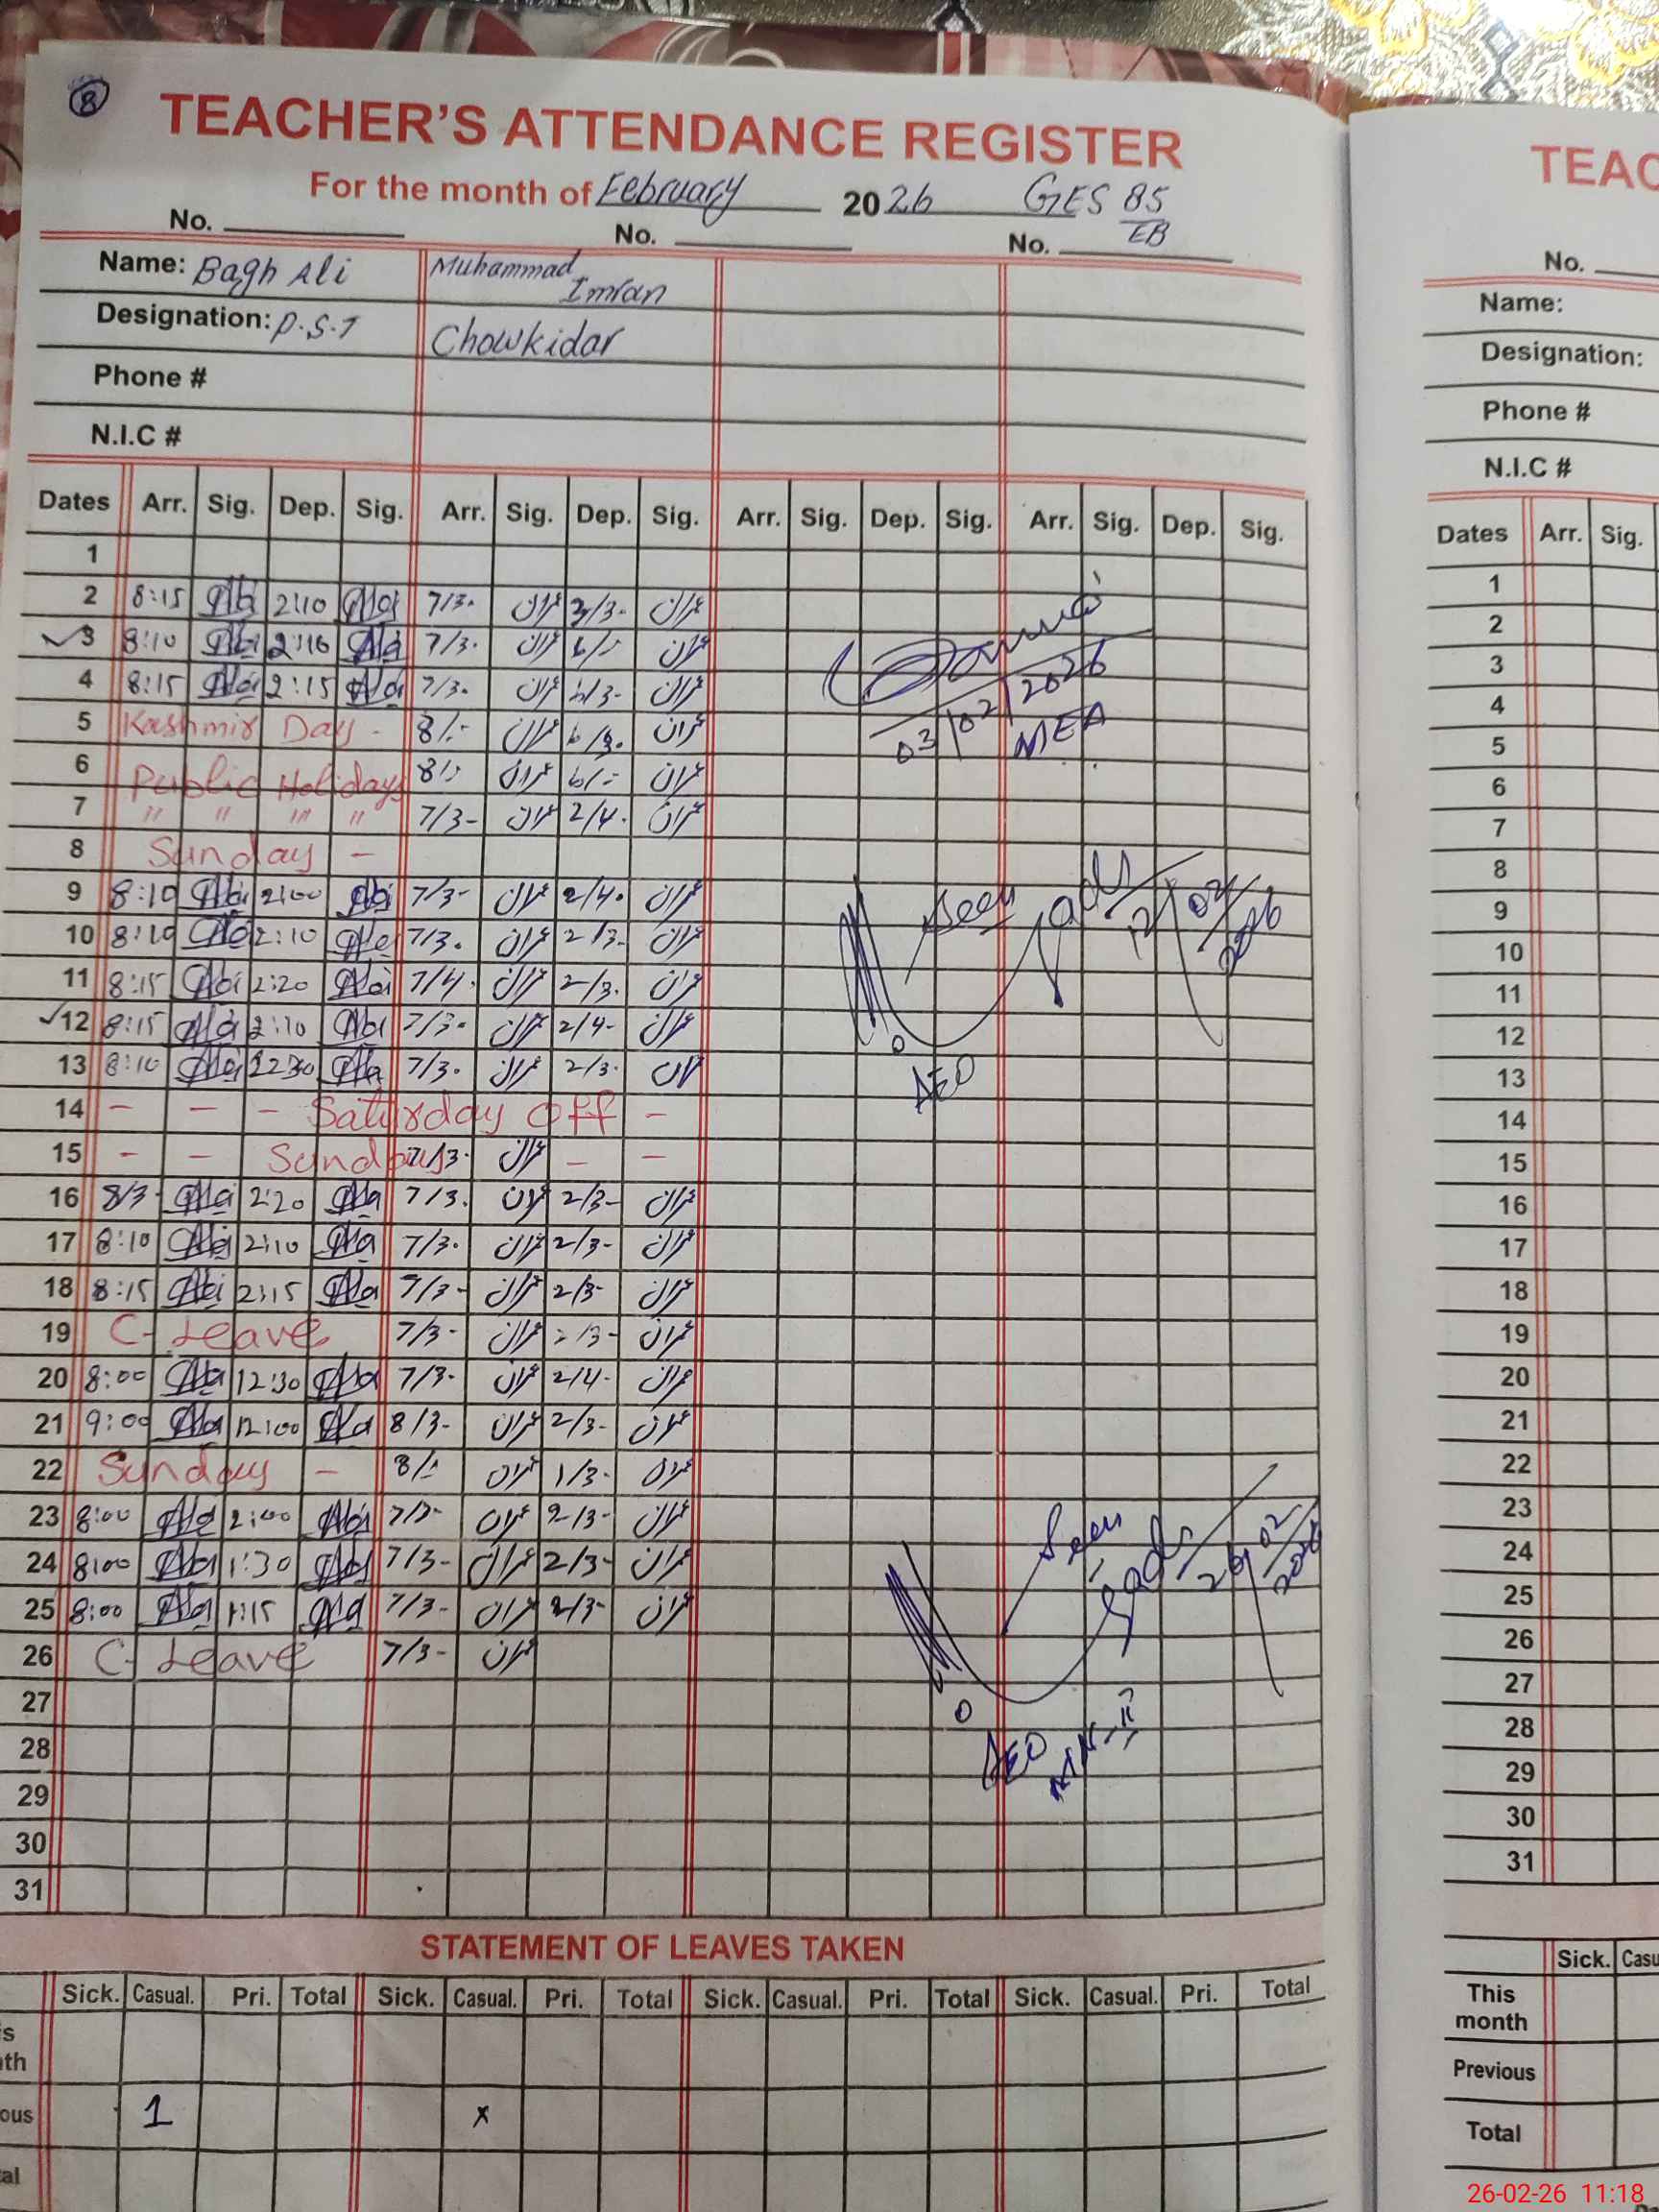 8
TEACHER'S ATTENDANCE REGISTER
For the month of February 2026 GES 85/EB
No. No. No.
Name: Bagh Ali Muhammad Imran
Designation: P.S.T Chowkidar
Phone #
N.I.C #
Dates Arr. Sig. Dep. Sig. Arr. Sig. Dep. Sig. Arr. Sig. Dep. Sig. Arr. Sig. Dep. Sig.
1
2 8:15 2:10 7/3- عمران عمران
3 8:10 2:10 7/3- عمران عمران
4 8:15 2:15 7/3- عمران عمران
03/02/2026
MEA
5 Kashmir Day - عمران عمران
6 Public Holidays عمران عمران
7 " " " " 7/3- عمران 2/4- عمران
8 Sunday -
9 8:10 2:00 7/3- عمران 2/4- عمران
Seen
12/02/2026
10 8:10 2:10 7/3- عمران 2/3- عمران
11 8:15 2:20 7/4- عمران 2/3- عمران
12 8:15 2:10 7/3- عمران 2/4- عمران
13 8:10 12:30 7/3- عمران 2/3- عمران
AEO
14 - - - Saturday Off -
15 - - Sunday 7/3- عمران - -
16 8/3- 2:20 7/3- عمران 2/3- عمران
17 8:10 2:10 7/3- عمران 2/3- عمران
18 8:15 2:15 7/3- عمران 2/3- عمران
19 C-Leave 7/3- عمران عمران
20 8:00 12:30 7/3- عمران 2/4- عمران
21 9:00 12:00 8/3- عمران 2/3- عمران
22 Sunday - عمران 1/3- عمران
23 8:00 2:00 7/3- عمران 2/3- عمران
Seen
26/02/2026
24 8:00 1:30 7/3- عمران 2/3- عمران
25 8:00 1:15 7/3- عمران 2/3- عمران
26 C-Leave 7/3- عمران
27
AEO
28
29
30
31
STATEMENT OF LEAVES TAKEN
Sick. Casual. Pri. Total Sick. Casual. Pri. Total Sick. Casual. Pri. Total Sick. Casual. Pri. Total
1 x
TEAC
No.
Name:
Designation:
Phone #
N.I.C #
Dates Arr. Sig.
1
2
3
4
5
6
7
8
9
10
11
12
13
14
15
16
17
18
19
20
21
22
23
24
25
26
27
28
29
30
31
Sick. Casu
This month
Previous
Total
26-02-26 11:18